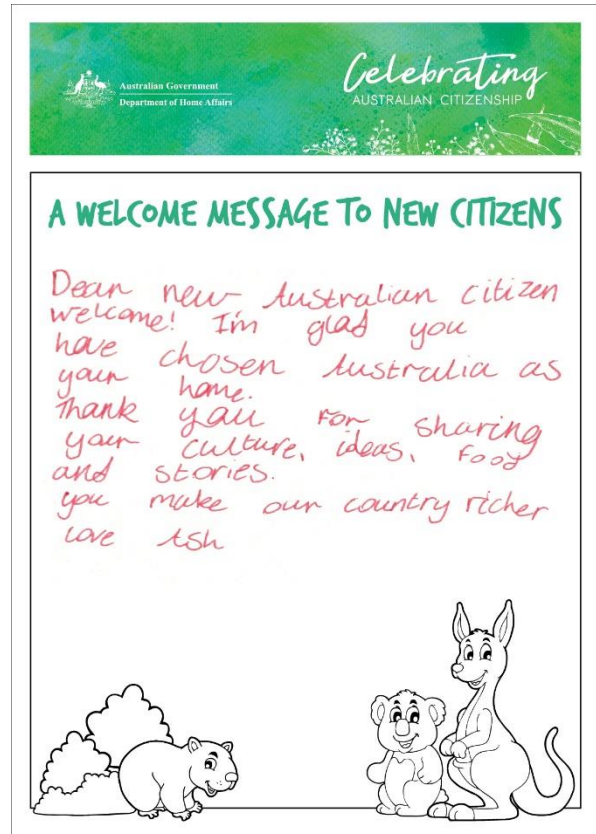 Australian Government
Department of Home Affairs
Celebrating
AUSTRALIAN CITIZENSHIP
A WELCOME MESSAGE TO NEW CITIZENS
Dear new Australian citizen
welcome! I'm glad you
have chosen Australia as
your home.
Thank you for sharing
your culture, ideas, food
and stories.
you make our country richer
love Ash